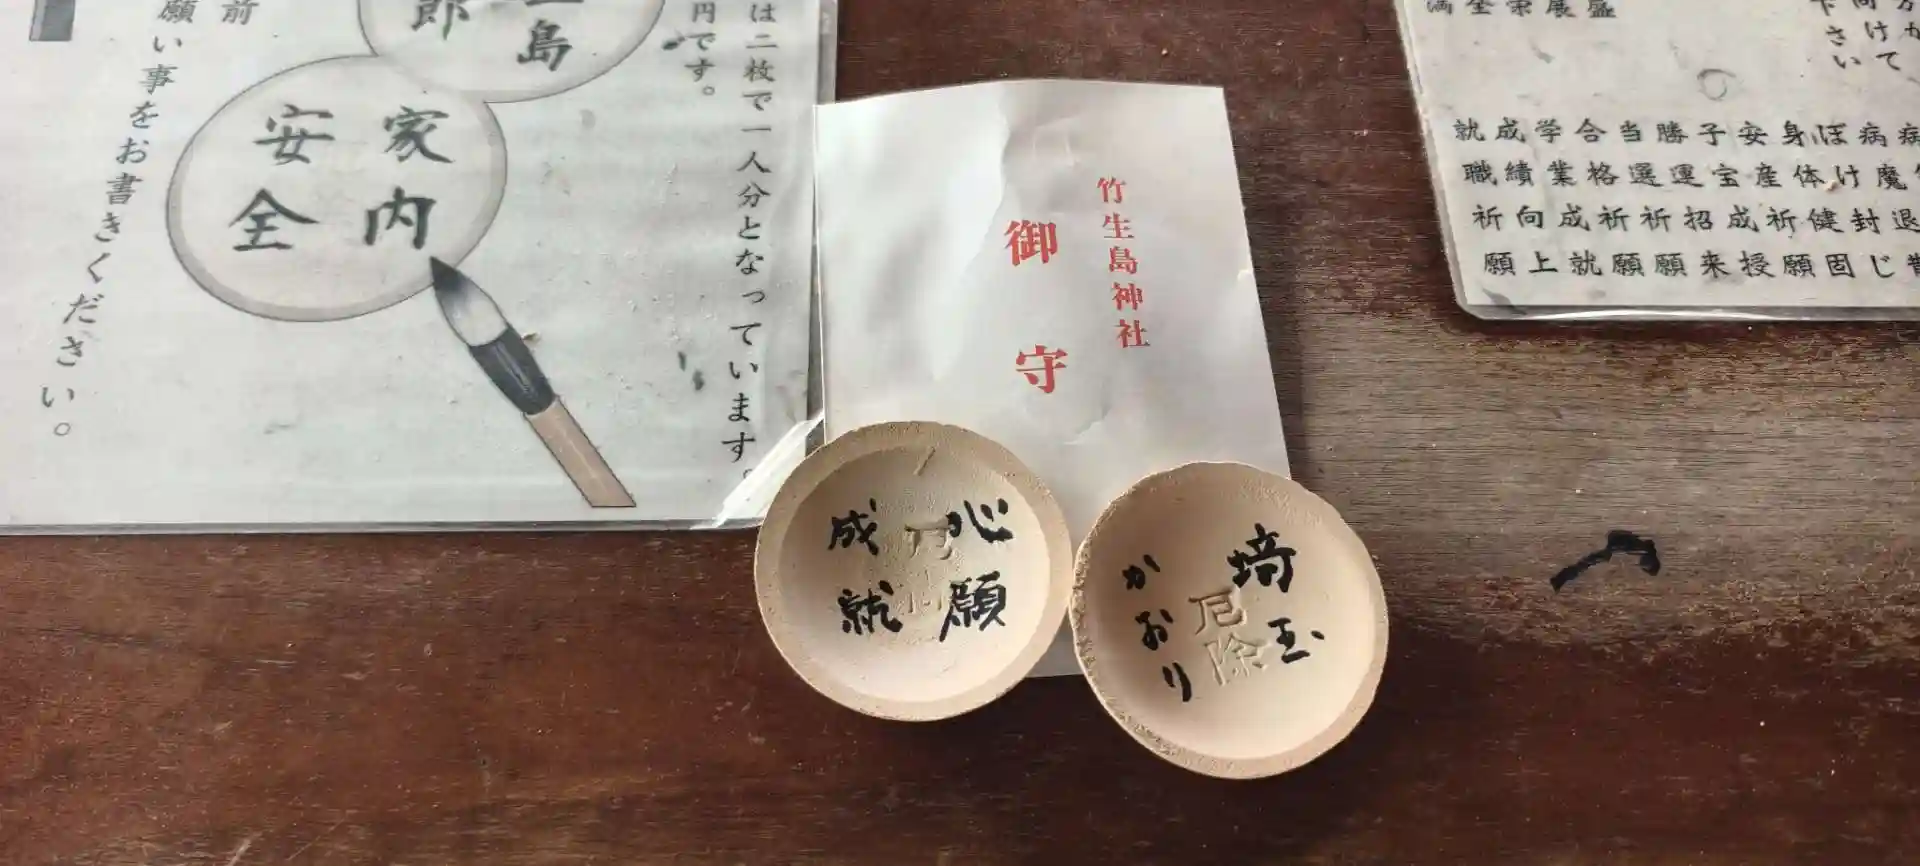 は二枚で一人分となっています。
円です。
島
郎
家内
安全
前
願い事をお書きください。
竹生島神社
御守
心願
成就
埼玉
厄除
かおり
向けて
下さい
病魔退散
ぼけ封じ
身体健固
安産祈願
子宝成授
勝運招来
当選祈願
合格祈願
学業成就
成績向上
就職祈願